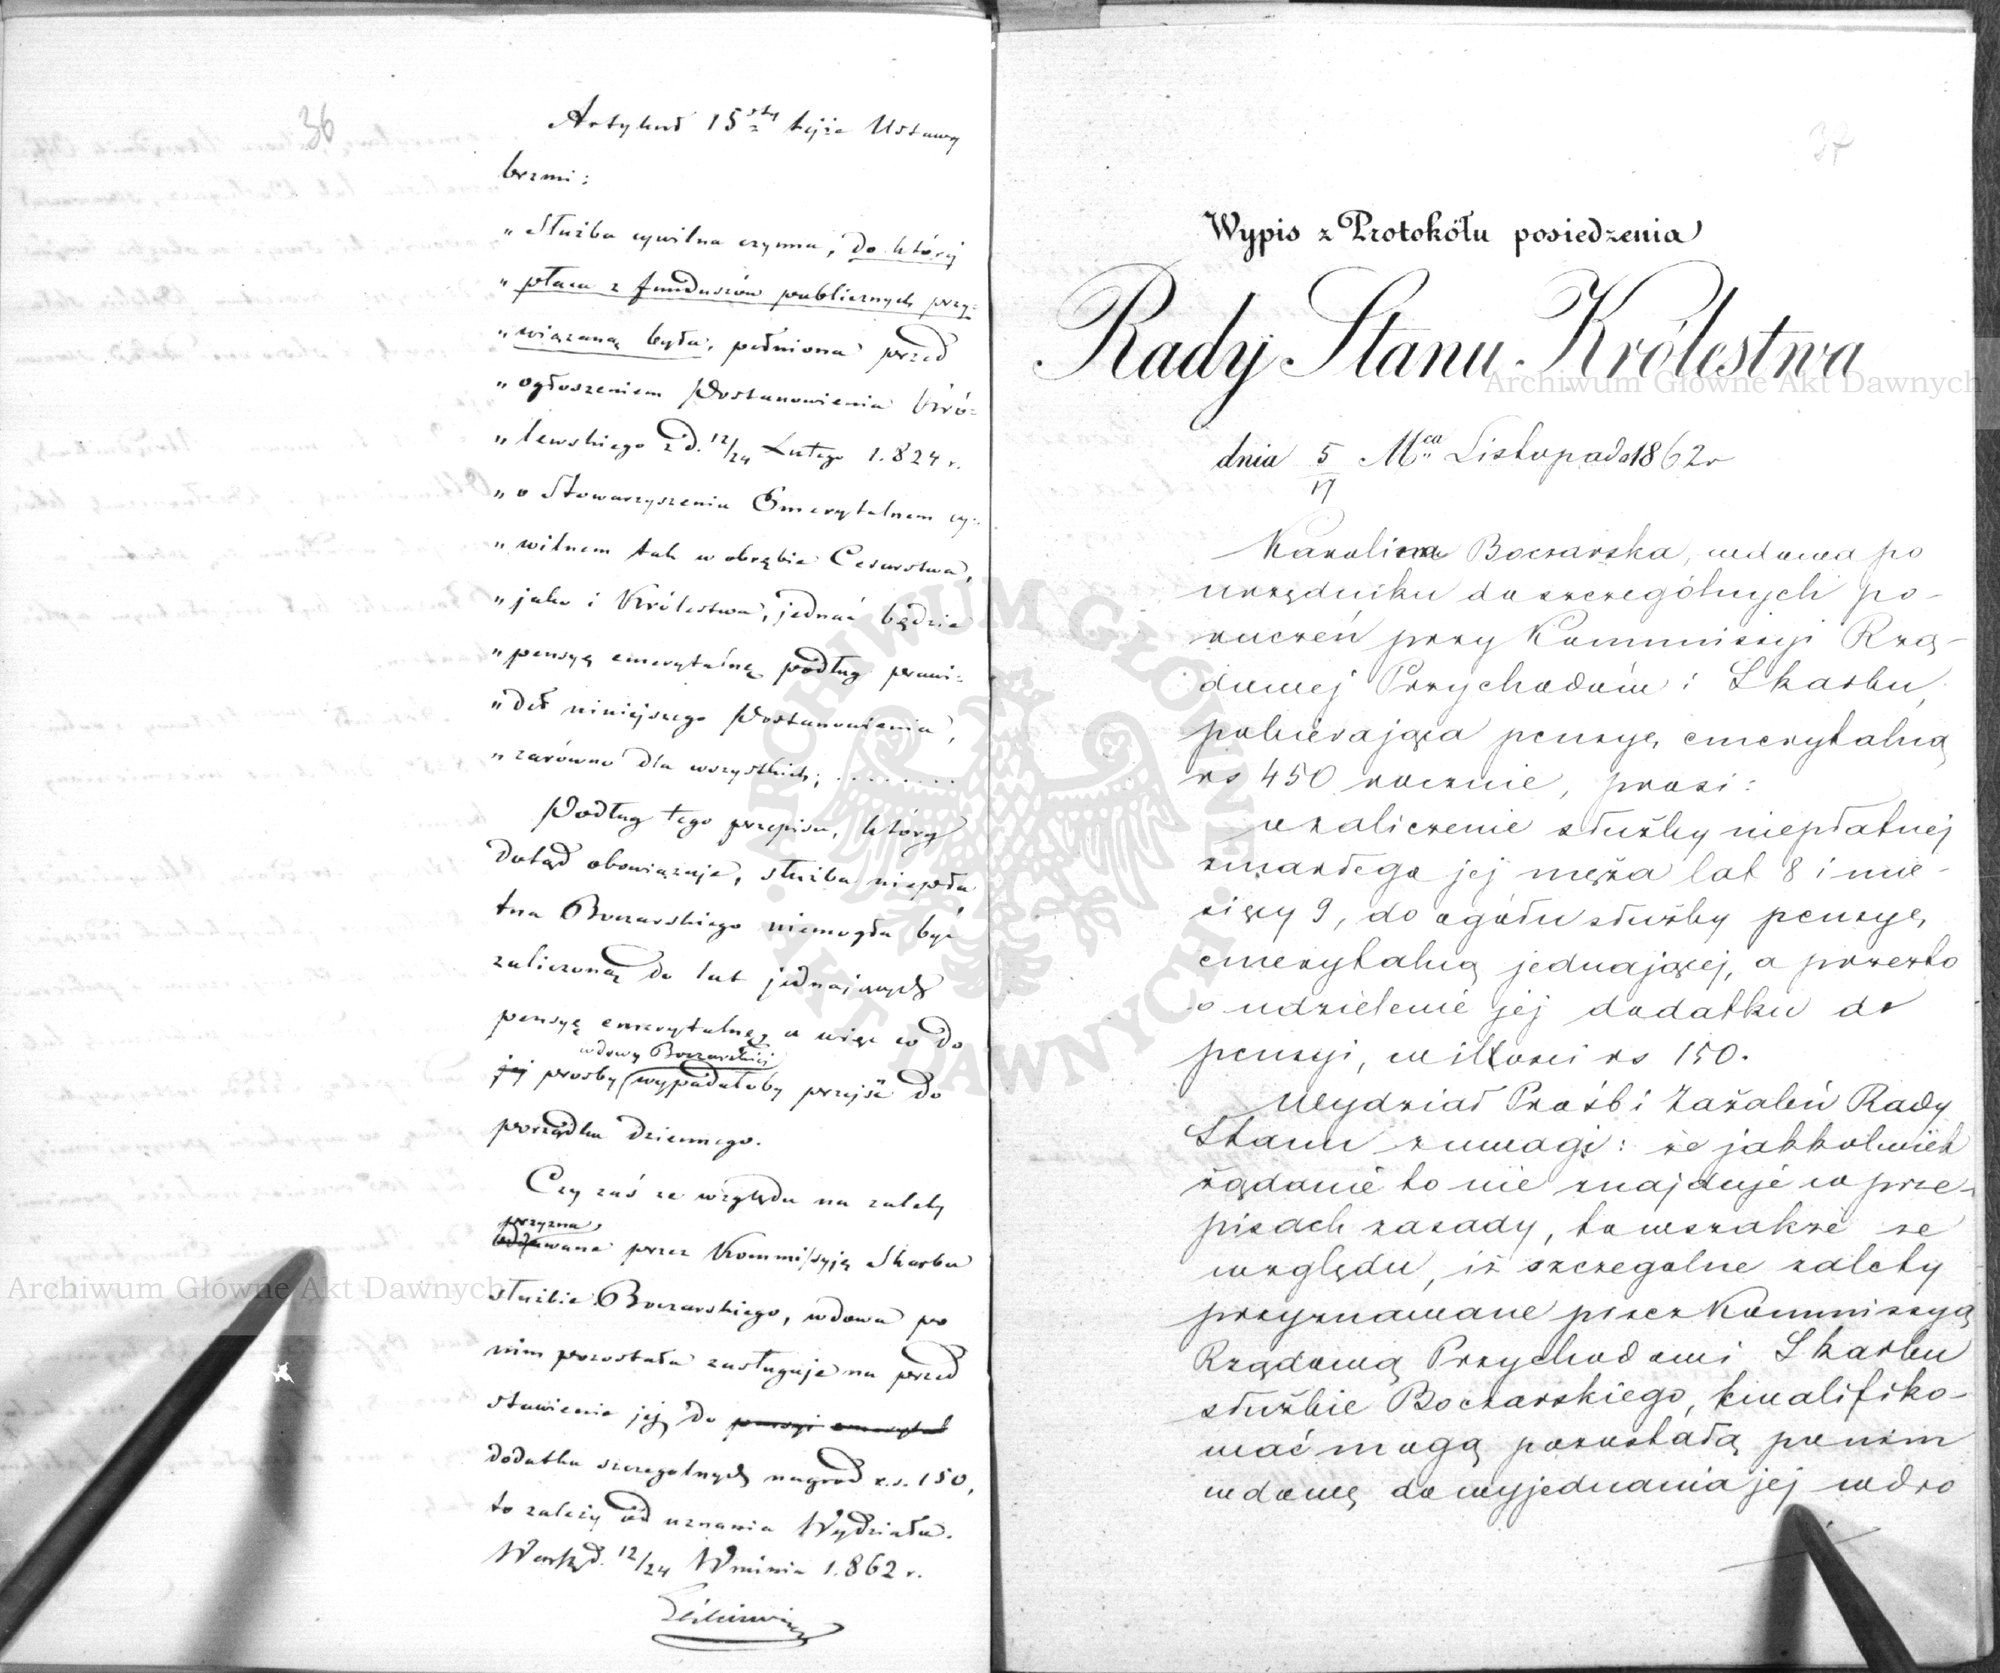 36
Artykuł 15sty tejże Ustawy
brzmi:
„ Służba cywilna czynna, do której
„ płaca z funduszów publicznych przy-
„ wiązaną była, pełniona przed
„ ogłoszeniem Postanowienia Kró-
„ lewskiego z d. 12/24 Lutego 1.824 r.
„ o Stowarzyszeniu Emerytalnem cy-
„ wilnem tak w obrębie Cesarstwa,
„ jako i Królestwa, jednać będzie
„ pensyą emerytalną podług prawi-
„ deł niniejszego Postanowienia,
„ zarówno dla wszystkich; . . . . . . . .
Podług tego przepisu, który
dotąd obowiązuje, służba niepła
tna Boczarskiego niemogła być
zaliczoną do lat jednających
pensyą emerytalną, a więc co do
wdowy Boczarskiej
jej prosby wypadałoby przejść do
porządku dziennego.
Czy zaś ze względu na zalety
przyzna-
wane przez Kommissyją Skarbu
służbie Boczarskiego, wdowa po
nim pozostała zasługuje na przed
stawienie jej do pensyi emerytal
dodatku szczegolnych nagrod r.s. 150,
to zależy od uznania Wydziału.
Warsz. d. 12/24 Wrznia 1.862 r.
37
Wypis z Protokółu posiedzenia
Rady Stanu Królestwa
dnia 5/17 Mca Listopada 1862 r
Karolina Boczarska, wdowa po
urzędniku do szczególnych po-
ruczeń przy Kommissyi Rzą-
dowej Przychodów i Skarbu,
pobierająca pensyę emerytalną
rs 450 rocznie, prosi:
o zaliczenie służby niepłatnej
zmarłego jej męża lat 8 i mie-
sięcy 9, do ogółu służby pensyę
emerytalną jednającej, a przezto
o udzielenie jej dodatku do
pensyi, w ilości rs 150.
Wydział Prośb i Zażaleń Rady
Stanu z uwagi: że jakkolwiek
żądanie to nie znajduje w prze-
pisach zasady, to wszakże ze
względu, iż szczegolne zalety
przyznawane przez Kommissyą
Rządową Przychodow i Skarbu
służbie Boczarskiego, kwalifiko-
wać mogą pozostałą po nim
wdowę do wyjednania jej w dro
Archiwum Główne Akt Dawnych
Archiwum Główne Akt Dawnych
ARCHIWUM GŁÓWNE AKT DAWNYCH